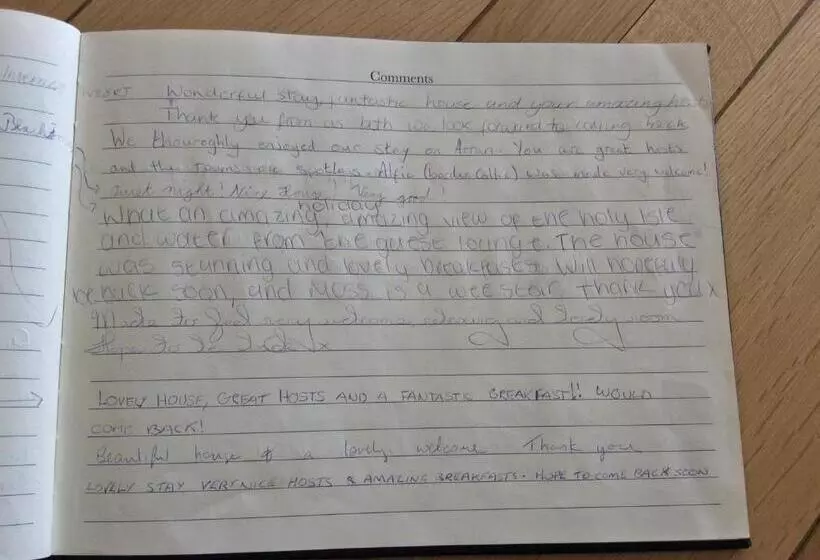 Comments
Wonderful stay, fantastic house and your amazing hosts
Thank you from us both we look forward to coming back
We thoureghly enjoyed our stay on Arran. You are great hosts
and the rooms are spotless. Alfie (border Collie) was made very welcome!
Just right! Nice House! Very good!
holiday
What an amazing, amazing view of the holy Isle
and water from the guest lounge. The house
was stunning and lovely breakfasts. Will hopefully
be back soon, and Moss is a wee star. Thank you x
Made to feel very welcome, relaxing and lovely room
Hope to be back x
LOVELY HOUSE, GREAT HOSTS AND A FANTASTIC BREAKFAST!! WOULD
COME BACK!
Beautiful house & a lovely welcome Thank you
LOVELY STAY VERY NICE HOSTS & AMAZING BREAKFASTS. HOPE TO COME BACK SOON